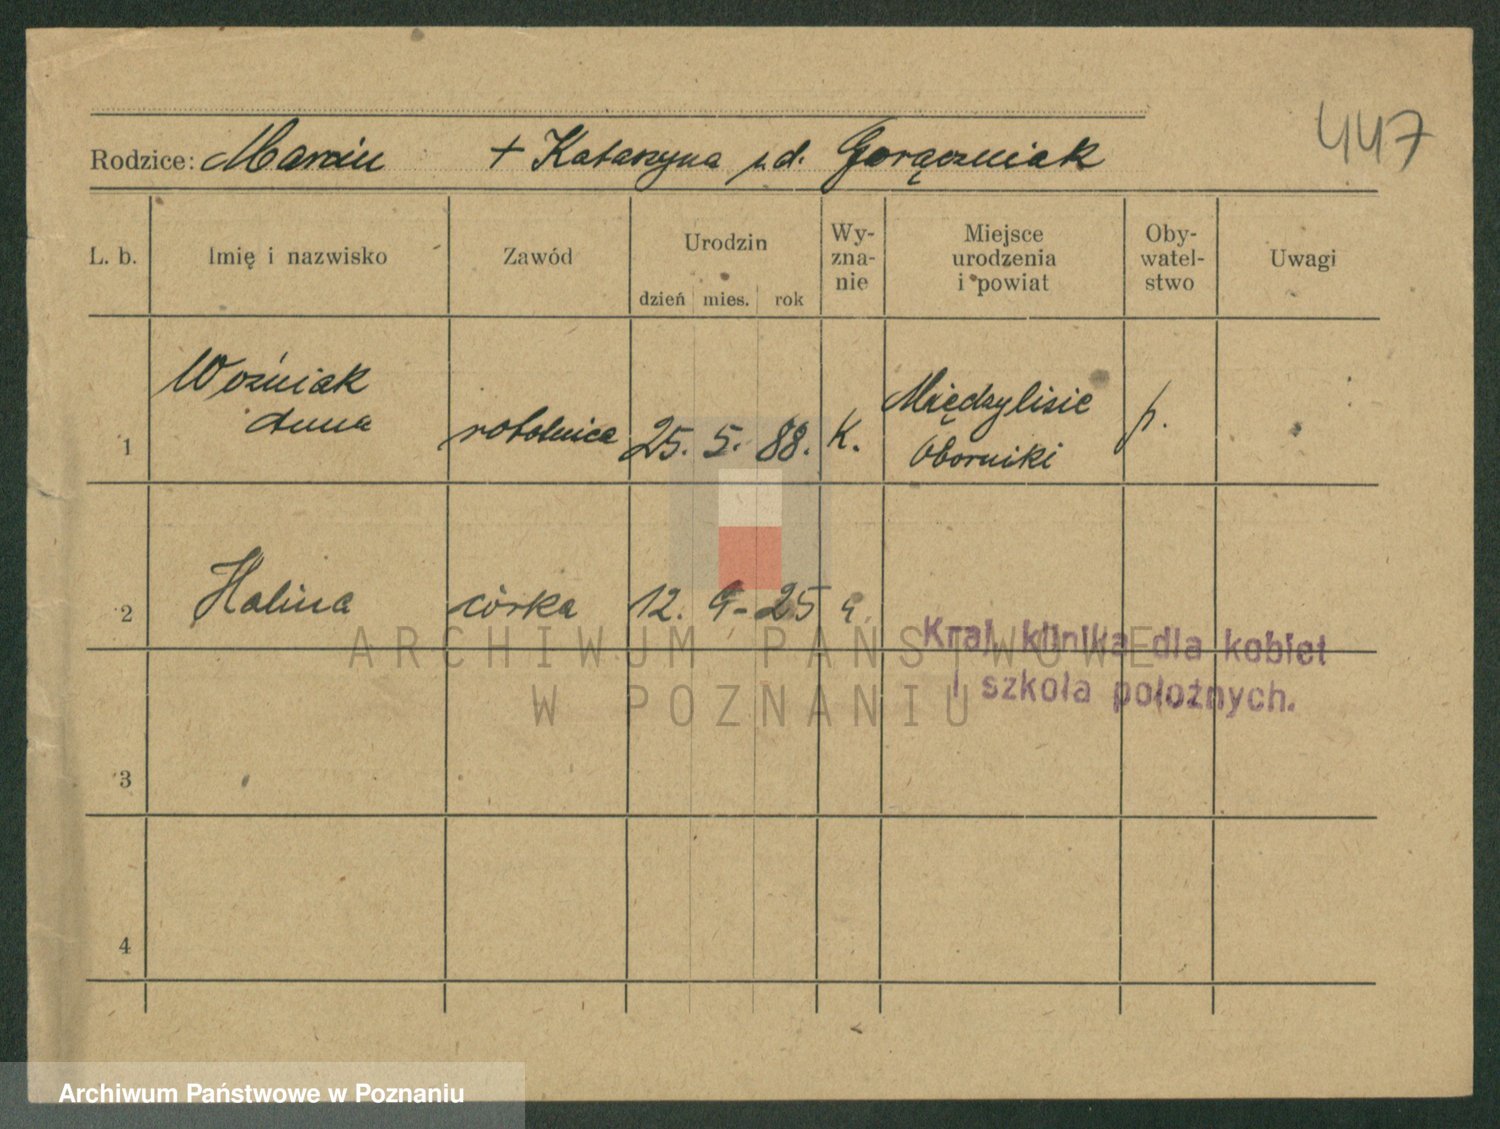 447
Rodzice: Marcin + Katarzyna z d. Gorączniak
L. b. Imię i nazwisko Zawód Urodzin dzień mies. rok Wy-znanie Miejsce urodzenia i powiat Oby-watel-stwo Uwagi
Woźniak
1 Anna robotnica 25. 5. 88. K. Międzylisie p.
Oborniki
2 Halina córka 12. 9. 25
Kraj. klinika dla kobiet
i szkoła położnych.
3
4
ARCHIWUM PAŃSTWOWE
W POZNANIU
Archiwum Państwowe w Poznaniu